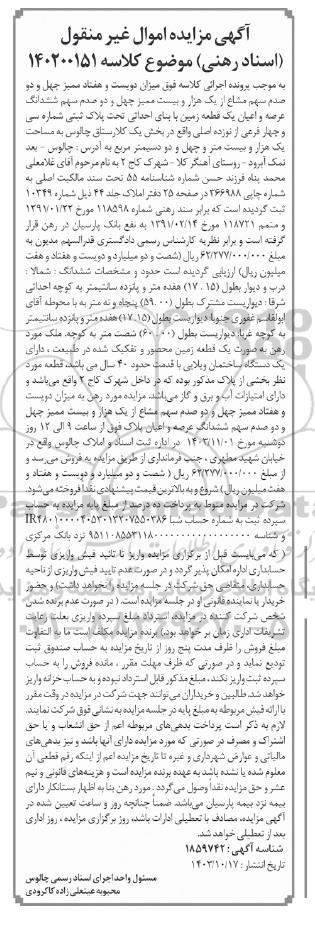 آگهی مزایده اموال غیر منقول
(اسناد رهنی) موضوع کلاسه ۱۴۰۲۰۰۱۵۱
به موجب پرونده اجرائی کلاسه فوق میزان دویست و هفتاد ممیز چهل و دو
صدم سهم مشاع از یک هزار و بیست ممیز چهل و دو صدم سهم ششدانگ
عرصه و اعیان یک قطعه زمین با بنای احداثی تحت پلاک ثبتی شماره سی
و چهار فرعی از نوزده اصلی واقع در بخش یک کلارستاق چالوس به مساحت
یک هزار و بیست متر و چهل و دو دسیمتر مربع به آدرس : چالوس - بعد
نمک آبرود - روستای آهنگر کلا - شهرک کاج ۲ به نام مرحوم آقای غلامعلی
محمد پناه فرزند حسن شماره شناسنامه ۵۵ تحت سند مالکیت اصلی به
شماره چاپی ۳۶۶۹۸۸ در صفحه ۲۵ دفتر املاک جلد ۴۴ ذیل شماره ۱۰۳۴۹
ثبت گردیده است که برابر سند رهنی شماره ۱۱۸۵۹۸ مورخ ۱۳۹۱/۰۱/۲۲
و متمم ۱۱۸۷۲۱ مورخ ۱۳۹۱/۰۲/۱۴ به نفع بانک پارسیان در رهن قرار
گرفته است و برابر نظریه کارشناس رسمی دادگستری قدرالسهم مدیون به
مبلغ ۶۲/۲۷۷/۰۰۰/۰۰۰ ریال (شصت و دو میلیارد و دویست و هفتاد و هفت
میلیون ریال) ارزیابی گردیده است حدود و مشخصات ششدانگ : شمالا :
درب و دیوار بطول (۱۵ . ۱۷) هفده متر و پانزده سانتیمتر به کوچه احداثی
شرقا : دیواریست مشترک بطول (۰۰. ۵۹) پنجاه و نه متر به با محوطه آقای
ابوالقاسم غفوری جنوبا: دیواریست بطول (۱۵. ۱۷) هفده متر و پانزده سانتیمتر
به کوچه غربا: دیواریست بطول (۰۰. ۶۰) شصت متر به کوچه. ملک مورد
رهن به صورت یک قطعه زمین محصور و تفکیک شده در طبیعت ، دارای
یک دستگاه ساختمان ویلایی با قدمت حدود ۴۰ سال می باشد. قطعه مورد
نظر بخشی از پلاک مذکور بوده که در داخل شهرک کاج ۲ واقع می‌باشد و
دارای امتیازات آب و برق و گاز می‌باشد. مزایده مورد رهن به میزان دویست
و هفتاد ممیز چهل و دو صدم سهم مشاع از یک هزار و بیست ممیز چهل
و دو صدم سهم ششدانگ عرصه و اعیان پلاک فوق از ساعت ۹ الی ۱۲ روز
دوشنبه مورخ ۱۴۰۳/۱۱/۰۱ در اداره ثبت اسناد و املاک چالوس واقع در
خیابان شهید مطهری ، جنب فرمانداری از طریق مزایده به فروش می‌رسد و
از مبلغ ۶۲/۲۷۷/۰۰۰/۰۰۰ ریال ( شصت و دو میلیارد و دویست و هفتاد و
هفت میلیون ریال) شروع و به بالاترین قیمت پیشنهادی نقدا فروخته می‌شود.
شرکت در مزایده منوط به پرداخت ده درصد از مبلغ پایه مزایده به حساب
سپرده ثبت به شماره حساب شبا
و شناسه نزد بانک مرکزی
( که می‌بایست قبل از برگزاری مزایده واریز تا تائید فیش واریزی توسط
حسابداری اداره امکان پذیر گردد و در صورت عدم تایید فیش واریزی از ناحیه
حسابداری، متقاضی حق شرکت در جلسه مزایده را نخواهد داشت) و حضور
خریدار یا نماینده قانونی او در جلسه مزایده است. ( در صورت عدم برنده شدن
شخص شرکت کننده در مزایده، استرداد مبلغ سپرده واریزی بعلت رعایت
تشریفات اداری زمان بر خواهد بود.) برنده مزایده مکلف است ما به التفاوت
مبلغ فروش را ظرف مدت پنج روز از تاریخ مزایده به حساب صندوق ثبت
تودیع نماید و در صورتی که ظرف مهلت مقرر ، مانده فروش را به حساب
سپرده ثبت واریز نکند، مبلغ مذکور قابل استرداد نبوده و به حساب خزانه واریز
خواهد شد. طالبین و خریداران می‌توانند جهت شرکت در مزایده در وقت مقرر
با ارائه فیش مربوطه به مبلغ پایه در جلسه مزایده به نشانی فوق شرکت نمایند.
لازم به ذکر است پرداخت بدهی‌های مربوطه اعم از حق انشعاب و یا حق
اشتراک و مصرف در صورتی که مورد مزایده دارای آنها باشد و نیز بدهی‌های
مالیاتی و عوارض شهرداری و غیره تا تاریخ مزایده اعم از اینکه رقم قطعی آن
معلوم شده یا نشده باشد به عهده برنده مزایده است و هزینه‌های قانونی و نیم
عشر و حق مزایده نقداً وصول می‌گردد . مورد رهن بنا به اظهار بستانکار دارای
بیمه نزد بیمه پارسیان می‌باشد. ضمناً چنانچه روز و ساعت تعیین شده در
آگهی مزایده، مصادف با تعطیلی ادارات باشد، روز برگزاری مزایده ، روز اداری
بعد از تعطیلی خواهد شد.
شناسه آگهی : ۱۸۵۹۷۴۲
تاریخ انتشار : ۱۴۰۳/۱۰/۱۷
مسئول واحد اجرای اسناد رسمی چالوس
محبوبه عینعلی زاده کاکرودی